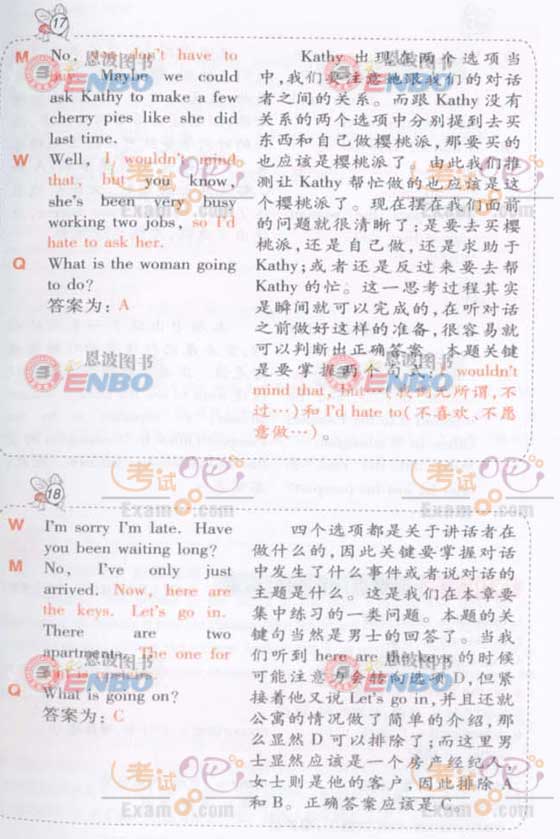 17
M No, you don't have to
buy. Maybe we could
ask Kathy to make a few
cherry pies like she did
last time.
W Well, I wouldn't mind
that, but you know,
she's been very busy
working two jobs, so I'd
hate to ask her.
Q What is the woman going
to do?
答案为：A
Kathy 出现在两个选项当
中，我们要注意她跟我们的对话
者之间的关系。而跟 Kathy 没有
关系的两个选项中分别提到去买
东西和自己做樱桃派，那要买的
也应该是樱桃派了，由此我们推
测让 Kathy 帮忙做的也应该是这
个樱桃派了。现在摆在我们面前
的问题就很清晰了：是要去买樱
桃派，还是自己做，还是求助于
Kathy；或者还是反过来要去帮
Kathy 的忙。这一思考过程其实
是瞬间就可以完成的，在听对话
之前做好这样的准备，很容易就
可以判断出正确答案。本题关键
是要掌握两个句式：I wouldn't
mind that, but…(我倒无所谓，不
过…)和 I'd hate to(不喜欢、不愿
意做…)。
18
W I'm sorry I'm late. Have
you been waiting long?
M No, I've only just
arrived. Now, here are
the keys. Let's go in.
There are two
apartments. The one for
Q What is going on?
答案为：C
四个选项都是关于讲话者在
做什么的，因此关键要掌握对话
中发生了什么事件或者说对话的
主题是什么。这是我们在本章要
集中练习的一类问题。本题的关
键句当然是男士的回答了。当我
们听到 here are the keys 的时候
可能注意力会转向选项 D，但紧
接着他又说 Let's go in，并且还就
公寓的情况做了简单的介绍，那
么显然 D 可以排除了；而这里男
士显然应该是一个房产经纪人，
女士则是他的客户，因此排除 A
和 B。正确答案应该是 C。
恩波图书
ENBO
考试吧
Exam8.com